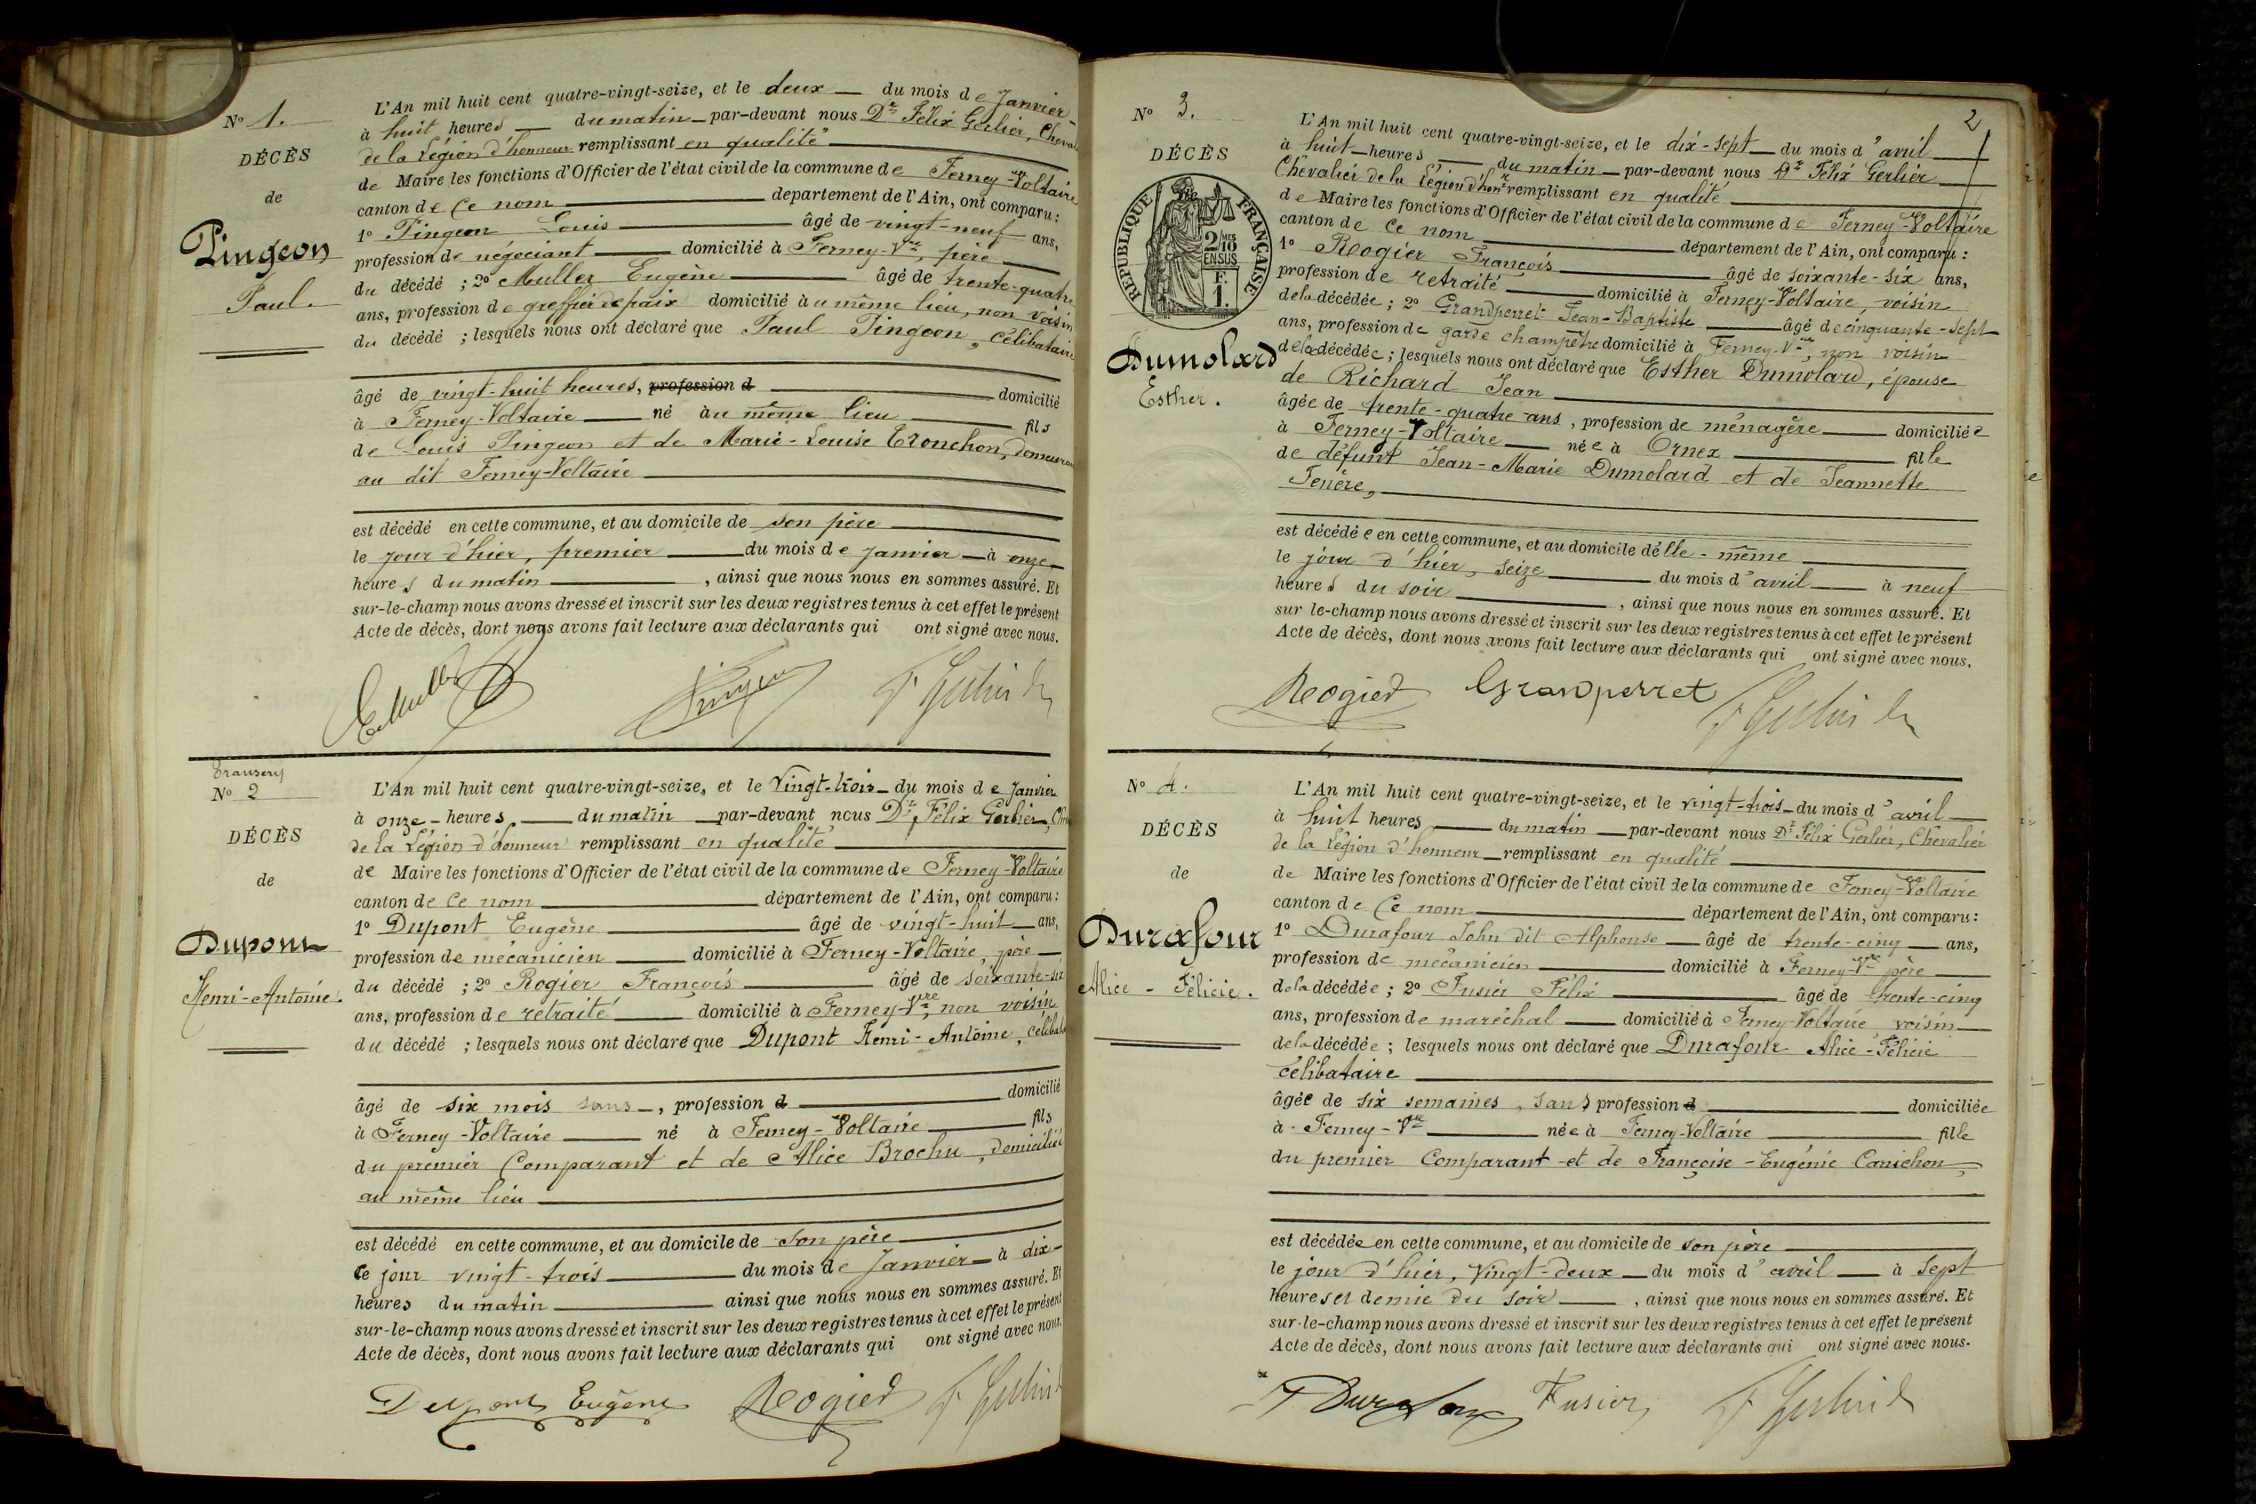 N° 1.
DÉCÈS
de
Pingeon
Paul.
L'An mil huit cent quatre-vingt-seize, et le deux du mois de Janvier
à huit heures du matin par-devant nous Dr Félix Gerlier, Cheval
de la Légion d'honneur remplissant en qualité
de Maire les fonctions d'Officier de l'état civil de la commune de Ferney-Voltaire
canton de Ce nom département de l'Ain, ont comparu :
1° Pingeon Louis âgé de vingt-neuf ans,
profession de négociant domicilié à Ferney-Vre, père
du décédé ; 2° Muller Eugène âgé de trente-quatre
ans, profession de greffier de paix domicilié au même lieu, non voisin
du décédé ; lesquels nous ont déclaré que Paul Pingeon, célibataire
âgé de vingt-huit heures, profession d domicilié
à Ferney-Voltaire né au même lieu fils
de Louis Pingeon et de Marie-Louise Tronchon, demeurant
au dit Ferney-Voltaire
est décédé en cette commune, et au domicile de son père
le jour d'hier, premier du mois de janvier à onze
heures du matin , ainsi que nous nous en sommes assuré. Et
sur-le-champ nous avons dressé et inscrit sur les deux registres tenus à cet effet le présent
Acte de décès, dont nous avons fait lecture aux déclarants qui ont signé avec nous.
EMuller Pingeon F Gerlier Dr
Transcrit
N° 2
DÉCÈS
de
Dupont
Henri-Antoine.
L'An mil huit cent quatre-vingt-seize, et le Vingt-trois du mois de Janvier
à onze heures du matin par-devant nous Dr Félix Gerlier, Chev
de la Légion d'honneur remplissant en qualité
de Maire les fonctions d'Officier de l'état civil de la commune de Ferney-Voltaire
canton de Ce nom département de l'Ain, ont comparu :
1° Dupont Eugène âgé de vingt-huit ans,
profession de mécanicien domicilié à Ferney-Voltaire, père
du décédé ; 2° Rogier François âgé de soixante-six
ans, profession de retraité domicilié à Ferney-Vre, non voisin
du décédé ; lesquels nous ont déclaré que Dupont Henri-Antoine, célibat
âgé de six mois sans , profession d domicilié
à Ferney-Voltaire né à Ferney-Voltaire fils
du premier Comparant et de Alice Brochu, domiciliés
au même lieu
est décédé en cette commune, et au domicile de son père
Ce jour vingt-trois du mois de Janvier à dix
heures du matin ainsi que nous nous en sommes assuré. Et
sur-le-champ nous avons dressé et inscrit sur les deux registres tenus à cet effet le présent
Acte de décès, dont nous avons fait lecture aux déclarants qui ont signé avec nous.
Dupont Eugène Rogier F Gerlier
2
N° 3.
DÉCÈS
RÉPUBLIQUE FRANÇAISE
2/10 MES
EN SUS
F.
1.
Dumolard
Esther.
L'An mil huit cent quatre-vingt-seize, et le dix-sept du mois d'avril
à huit heures du matin par-devant nous Dr Félix Gerlier
Chevalier de la Légion d'honr remplissant en qualité
de Maire les fonctions d'Officier de l'état civil de la commune de Ferney-Voltaire
canton de Ce nom département de l'Ain, ont comparu :
1° Rogier François âgé de soixante-six ans,
profession de retraité domicilié à Ferney-Voltaire, voisin
de la décédée ; 2° Grandperret Jean-Baptiste âgé de cinquante-sept
ans, profession de garde champêtre domicilié à Ferney-Vre, non voisin
de la décédée ; lesquels nous ont déclaré que Esther Dumolard, épouse
de Richard Jean
âgée de trente-quatre ans, profession de ménagère domiciliée
à Ferney-Voltaire née à Ornex fille
de défunt Jean-Marie Dumolard et de Jeannette
est décédée en cette commune, et au domicile d'elle-même
le jour d'hier, seize du mois d'avril à neuf
heures du soir , ainsi que nous nous en sommes assuré. Et
sur le-champ nous avons dressé et inscrit sur les deux registres tenus à cet effet le présent
Acte de décès, dont nous avons fait lecture aux déclarants qui ont signé avec nous.
Rogier Granperret F Gerlier Dr
N° 4.
DÉCÈS
de
Durafour
Alice-Félicie.
L'An mil huit cent quatre-vingt-seize, et le vingt-trois du mois d'avril
à huit heures du matin par-devant nous Dr Félix Gerlier, Chevalier
de la Légion d'honneur remplissant en qualité
de Maire les fonctions d'Officier de l'état civil de la commune de Ferney-Voltaire
canton de Ce nom département de l'Ain, ont comparu :
1° Durafour John dit Alphonse âgé de trente-cinq ans,
profession de mécanicien domicilié à Ferney-Vre père
de la décédée ; 2° Fusier Félix âgé de trente-cinq
ans, profession de maréchal domicilié à Ferney-Voltaire voisin
de la décédée ; lesquels nous ont déclaré que Durafour Alice-Félicie
célibataire
âgée de six semaines, sans profession d domiciliée
à Ferney-Vre née à Ferney-Voltaire fille
du premier Comparant et de Françoise-Eugénie Canichon,
est décédée en cette commune, et au domicile de son père
le jour d'hier, vingt-deux du mois d'avril à Sept
heures et demie du soir , ainsi que nous nous en sommes assuré. Et
sur-le-champ nous avons dressé et inscrit sur les deux registres tenus à cet effet le présent
Acte de décès, dont nous avons fait lecture aux déclarants qui ont signé avec nous.
Durafour Fusier F Gerlier Dr